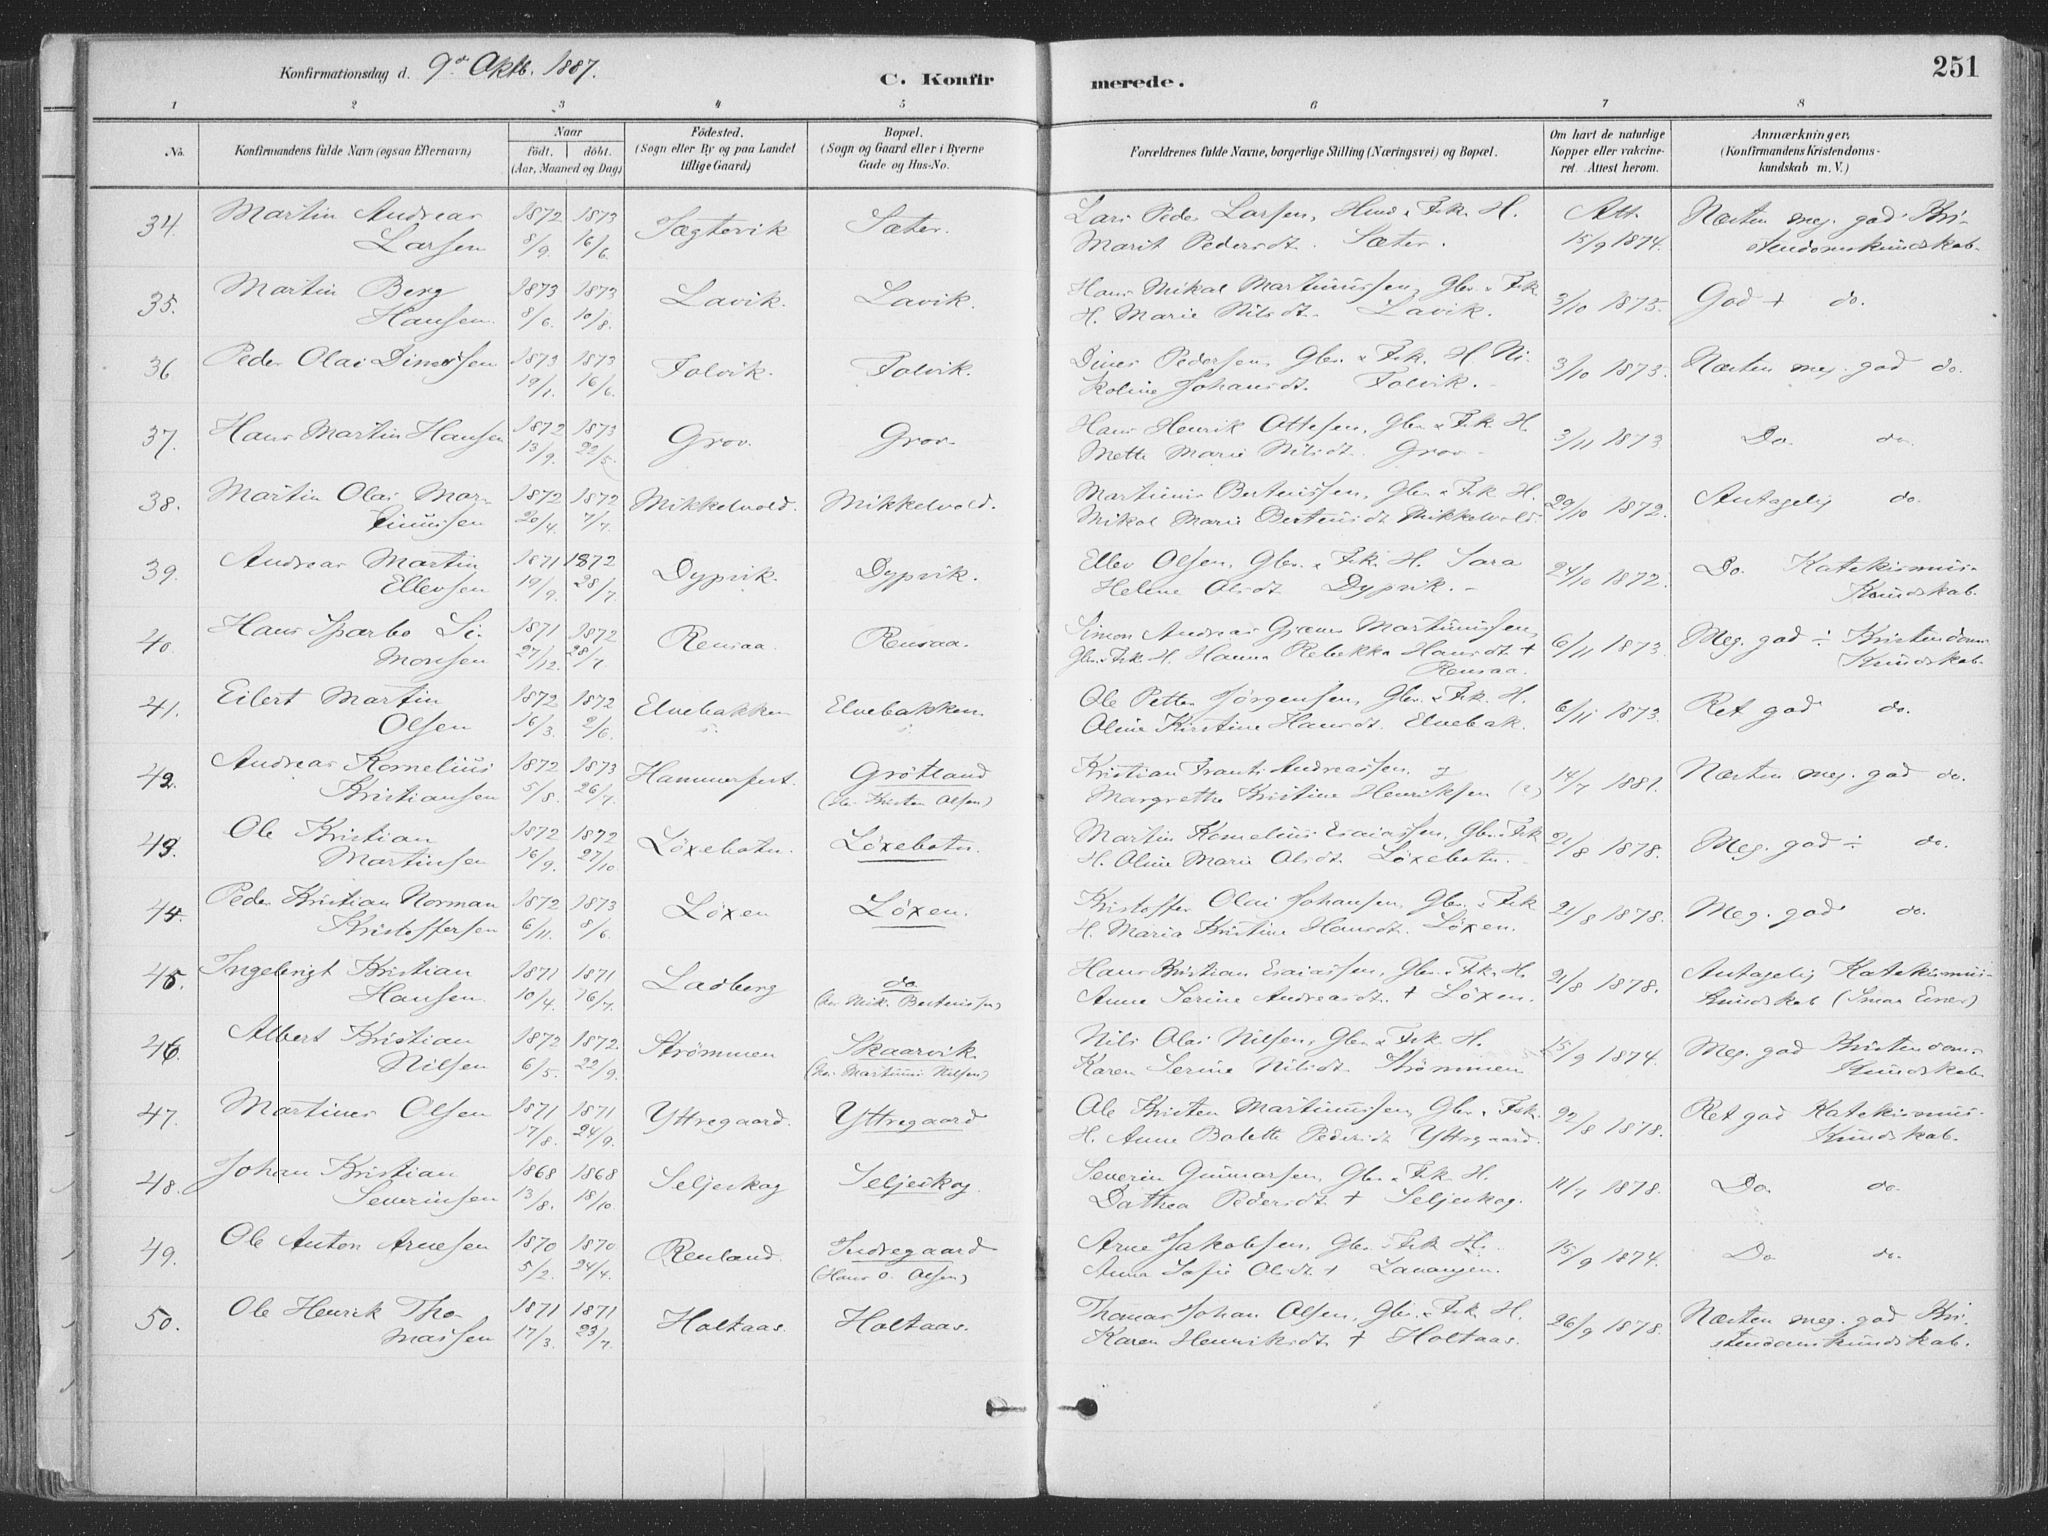 Konfirmationsdag d. 9de Oktb. 1887.
C. Konfirmerede.
251
1 2 3 4 5 6 7 8
No.
Konfirmandens fulde Navn (ogsaa Efternavn)
Naar
födt. döbt.
(Aar, Maaned og Dag)
Födested.
(Sogn eller By og paa Landet
tillige Gaard)
Bopæl.
(Sogn og Gaard eller i Byerne
Gade og Hus-No.
Forældrenes fulde Navne, borgerlige Stilling (Næringsvei) og Bopæl.
Om havt de naturlige
Kopper eller vakcine-
ret. Attest herom.
Anmærkninger,
(Konfirmandens Kristendoms-
kundskab m. V.)
34. Martin Andreas 1872 1873 Sægtevik Sæter. Lars Peder Larsen, Husm. & Fisk. H. Att. Næsten meg. god Kri-
Larsen 8/9. 16/6. Marit Pedersdt. Sæter. 15/9 1874. stendomskundskab.
35. Martin Berg 1873 1873 Lavik. Lavik. Hans Mikal Martinussen, Gbr. & Fisk 3/10 1875. God + do.
Hansen. 8/6. 10/8. H. Marie Nilsdt. Lavik.
36 Peder Olai Dinessen 1873 1873 Folvik. Folvik. Dines Pedersen, Gbr. & Fsk. H. Ni- 3/10 1873. Næsten meg. god do.
19/1. 16/6. koline Johansdt. Folvik.
37. Hans Martin Hansen 1872 1873 Grov. Grov. Hans Henrik Ottesen, Gbr. & Fsk. H. 3/11 1873 Do. do.
13/9. 22/5. Mette Marie Nilsdt. Grov
38. Martin Olai Mar- 1872 1872 Mikkelvold. Mikkelvold. Martinus Berteussen, Gbr. & Fsk. H. 20/10 1872. Antagelig do.
tinussen 20/4. 7/7. Mikal Marie Berteusdt. Mikkelvold.
39. Andreas Martin 1871 1872 Dypvik. Dypvik. Ellev Olsen, Gbr. & Fsk. H. Sara 24/10 1872. Do. Katekismus-
Ellevsen 19/9. 28/7. Helene Olsdt. Dypvik. Kundskab.
40. Hans Sparbo Si- 1871 1872 Rensaa. Rensaa. Simon Andreas Gjæver Martinussen, 6/11 1873. Meg. god ÷ Kristendoms
monsen 27/12. 28/7. Gbr. & Fsk. H. Hanna Rebekka Hansdt. + Kundskab.
Rensaa.
41. Eilert Martin 1872 1872 Elvebakken Elvebakken. Ole Petter Jörgensen, Gbr. & Fsk. H. 6/11 1873. Ret god do.
Olsen 16/3. 2/6. Oline Kirstine Hansdt. Elvebak.
42. Andreas Kornelius 1872 1873 Hammerfest. Grötland Kristian Frants Andreassen og 14/7 1881. Næsten meg. god do.
Kristiansen 5/8. 26/7. (hr. Kristen Olsen) Margrethe Kristine Henriksen (?)
43. Ole Kristian 1872 1872 Löxebotn. Löxebotn. Martin Kornelius Esaiassen, Gbr. & Fsk 21/8 1878. Meg. god ÷ do.
Martinsen 16/9. 27/10. H. Oline Marie Olsdt. Löxebotn.
44. Peder Kristian Norman 1872 1873 Löxen Löxen. Kristoffer Olai Johansen, Gbr. & Fsk 21/8 1878. Meg. god do.
Kristoffersen 6/11. 8/6. H. Maria Kristine Hansdt. Löxen.
45. Ingebrigt Kristian 1871 1871 Ladberg do. Hans Kristian Esaiassen, Gbr. & Fsk. H. 21/8 1878. Antagelig Katekismus-
Hansen. 10/4. 16/7. (hr. Mik. Berteussen) Anne Serine Andreasdt. + Löxen. Kundskab
46. Albert Kristian 1872 1872. Strömmen Skaarvik. Nils Olai Nilsen, Gbr. & Fsk. H. 15/9 1874. Meg. god Kristendoms-
Nilsen 6/5. 22/9. (hr. Martinus Nilsen) Karen Serine Nilsdt. Strömmen Kundskab.
47. Martines Olsen 1871 1871 Yttregaard. Yttregaard Ole Kristen Martinussen, Gbr. & Fsk. 22/8 1878. Ret god Katekismus-
17/8. 24/9. H. Anne Bolette Pedersdt. Yttregaard. Kundskab.
48. Johan Kristian 1868 1868 Seljeskog Seljeskog. Severin Gunnarsen, Gbr. & Fsk. H. 11/7 1878. Do. do.
Severinsen 13/8. 18/10. Dathea Pedersdt. + Seljeskog.
49. Ole Anton Arnesen 1870 1870 Renland. Indregaard Arne Jakobsen, Gbr. & Fsk. H. 15/9 1874. Do. do.
5/2. 24/4. (Hans O. Olsen) Anna Sofie Olsdt. + Lavangen.
50. Ole Henrik Tho- 1871 1871 Holtaas. Holtaas. Thomas Johan Olsen, Gbr. & Fsk. H. 26/9 1878. Næsten meg. god Kri-
massen 17/3. 23/7. Karen Henriksdt. + Holtaas. stendomskundskab.